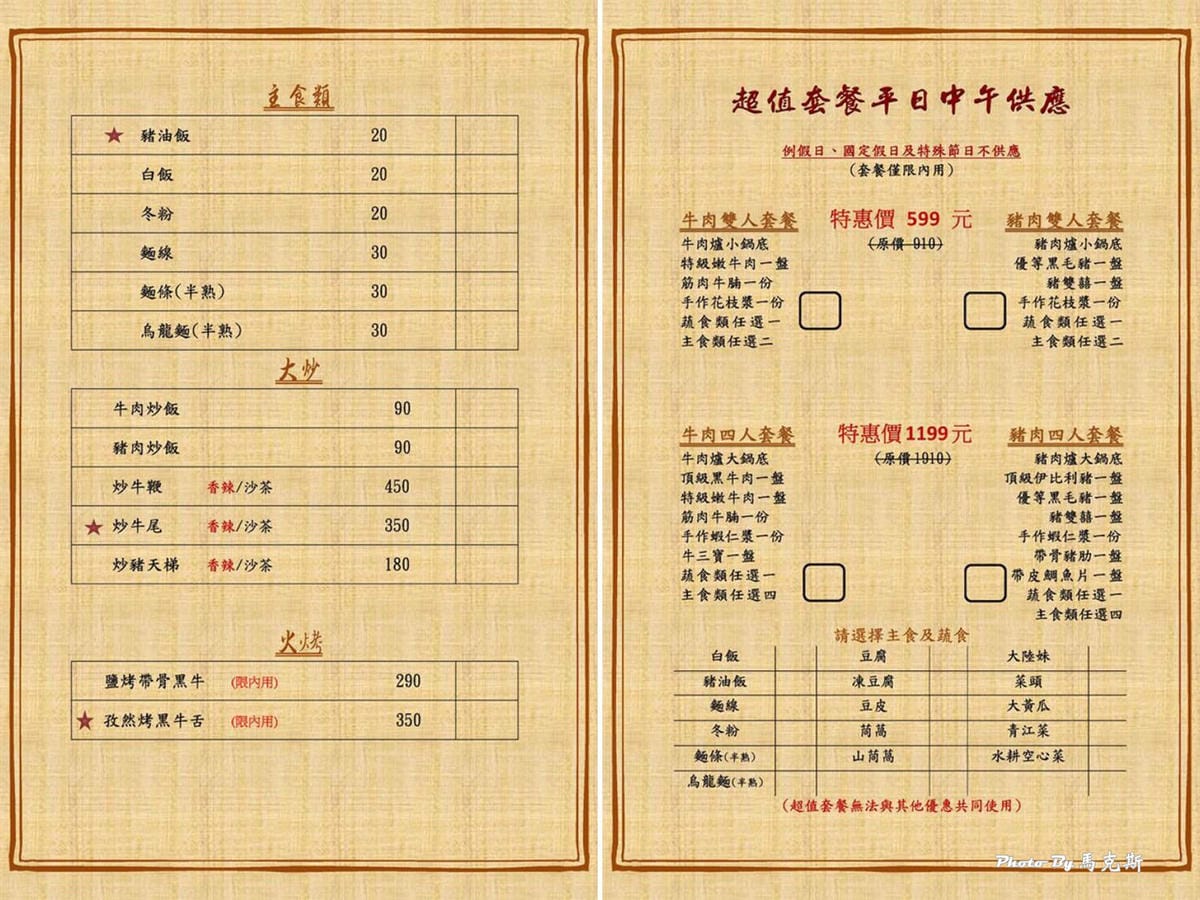 主食類
★ 豬油飯 20
白飯 20
冬粉 20
麵線 30
麵條(半熟) 30
烏龍麵(半熟) 30
大炒
牛肉炒飯 90
豬肉炒飯 90
炒牛鞭 香辣/沙茶 450
★ 炒牛尾 香辣/沙茶 350
炒豬天梯 香辣/沙茶 180
火烤
鹽烤帶骨黑牛 (限內用) 290
★ 孜然烤黑牛舌 (限內用) 350
超值套餐平日中午供應
例假日、國定假日及特殊節日不供應
(套餐僅限內用)
特惠價 599 元
(原價 910)
牛肉雙人套餐
牛肉爐小鍋底
特級嫩牛肉一盤
筋肉牛腩一份
手作花枝漿一份
蔬食類任選一
主食類任選二
豬肉雙人套餐
豬肉爐小鍋底
優等黑毛豬一盤
豬雙囍一盤
手作花枝漿一份
蔬食類任選一
主食類任選二
特惠價1199元
(原價1910)
牛肉四人套餐
牛肉爐大鍋底
頂級黑牛肉一盤
特級嫩牛肉一盤
筋肉牛腩一份
手作蝦仁漿一份
牛三寶一盤
蔬食類任選一
主食類任選四
豬肉四人套餐
豬肉爐大鍋底
頂級伊比利豬一盤
優等黑毛豬一盤
豬雙囍一盤
手作蝦仁漿一份
帶骨豬肋一盤
帶皮鯛魚片一盤
蔬食類任選一
主食類任選四
請選擇主食及蔬食
白飯 豆腐 大陸妹
豬油飯 凍豆腐 菜頭
麵線 豆皮 大黃瓜
冬粉 茼萵 青江菜
麵條(半熟) 山茼萵 水耕空心菜
烏龍麵(半熟)
(超值套餐無法與其他優惠共同使用)
Photo By 馬克斯